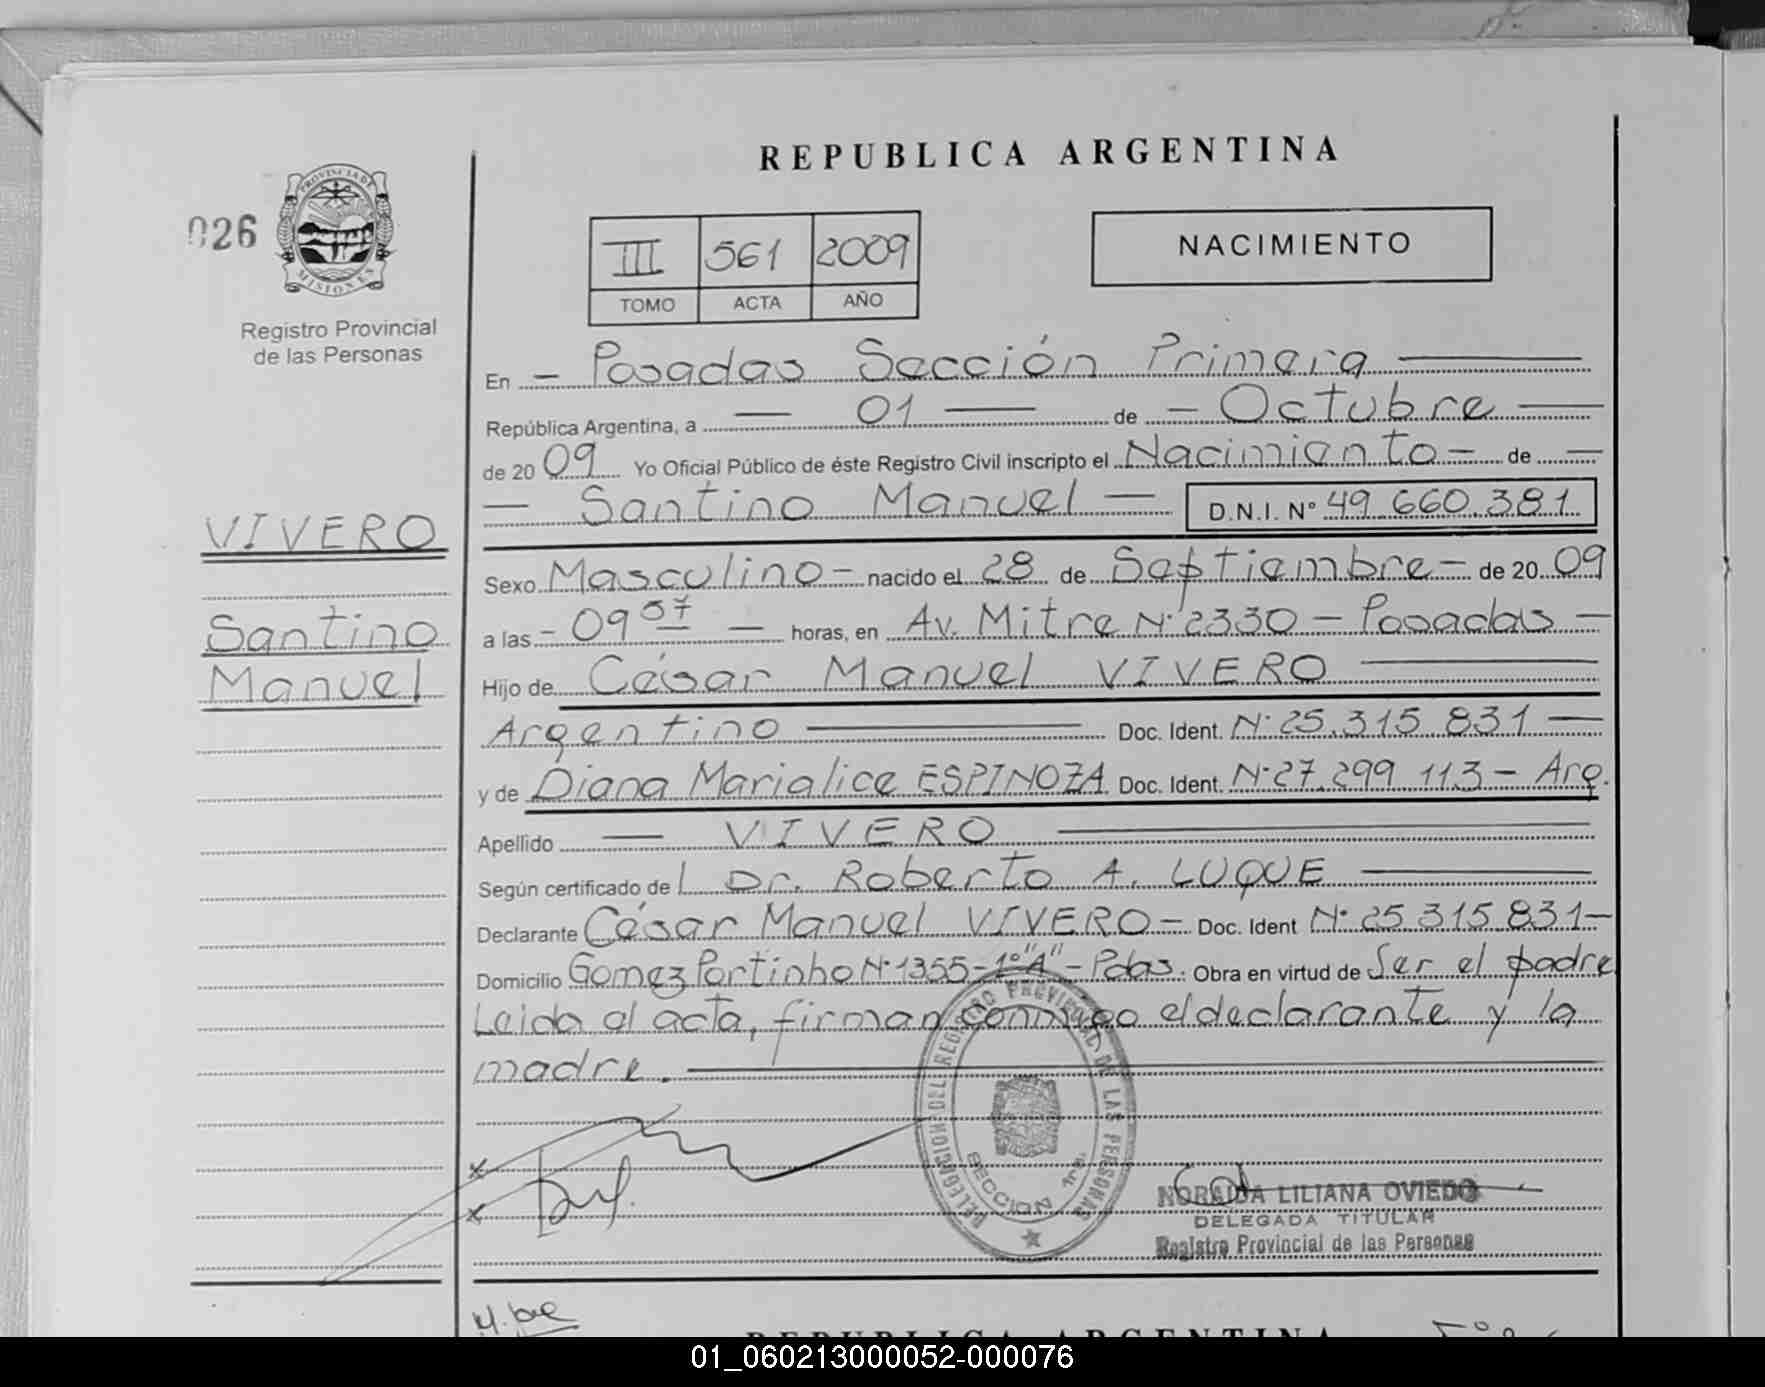 REPUBLICA ARGENTINA
026
PROVINCIA DE
MISIONES
Registro Provincial
de las Personas
III 561 2009
TOMO ACTA AÑO
NACIMIENTO
En - Posadas Sección Primera
República Argentina, a - 01 - de - Octubre -
de 20 09 Yo Oficial Público de éste Registro Civil inscripto el Nacimiento - de -
- Santino Manuel - D.N.I. N° 49.660.381
VIVERO
Santino
Manuel
Sexo Masculino - nacido el 28 de Septiembre - de 20 09
a las - 09 57 - horas, en Av. Mitre N° 2330 - Posadas -
Hijo de César Manuel VIVERO
Argentino Doc. Ident. N° 25.315.831 -
y de Diana Marialice ESPINOZA Doc. Ident. N° 27.299.113 - Arg.
Apellido - VIVERO
Según certificado del Dr. Roberto A. LUQUE
Declarante César Manuel VIVERO - Doc. Ident N° 25.315.831 -
Domicilio Gomez Portinho N° 1355 - 1° "A" - Pdas. Obra en virtud de Ser el padre
Leida el acta, firman conmigo el declarante y la
madre.
DELEGACION DEL REGISTRO PROVINCIAL DE LAS PERSONAS
SECCION 1ra.
x
x
NORAIDA LILIANA OVIEDO
DELEGADA TITULAR
Registro Provincial de las Personas
REPUBLICA ARGENTINA
01_060213000052-000076